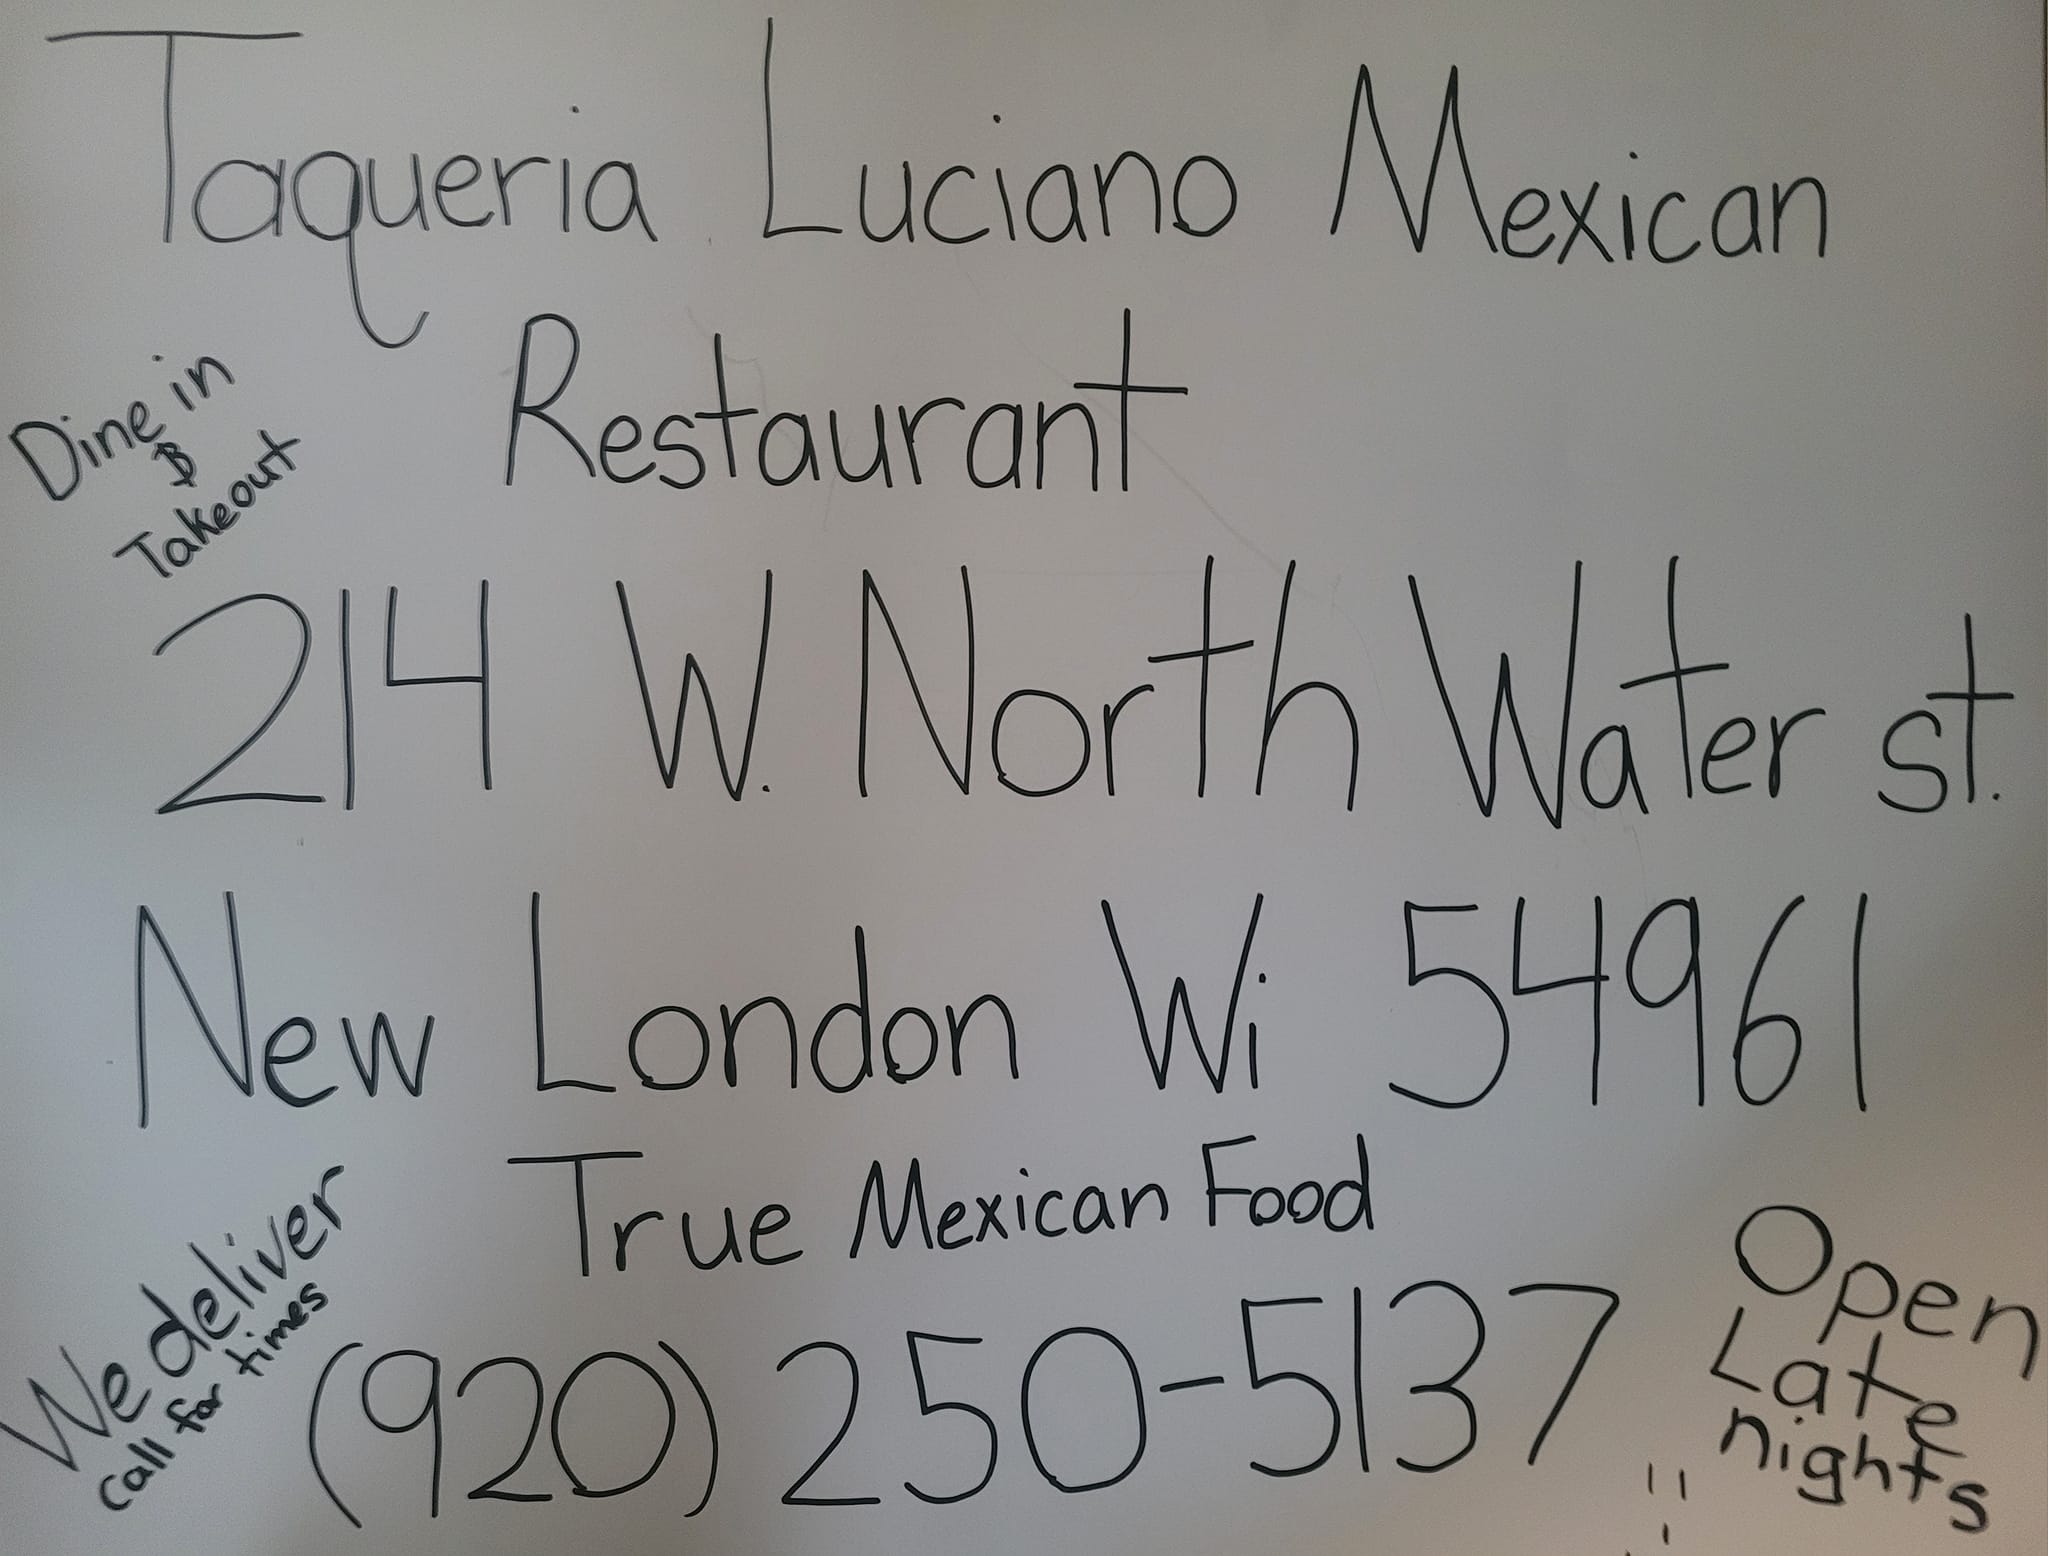 Taqueria Luciano Mexican
Restaurant
Dine in
&
Takeout
214 W. North Water st.
New London Wi 54961
True Mexican Food
We deliver
call for times
(920) 250-5137
Open
Late
nights